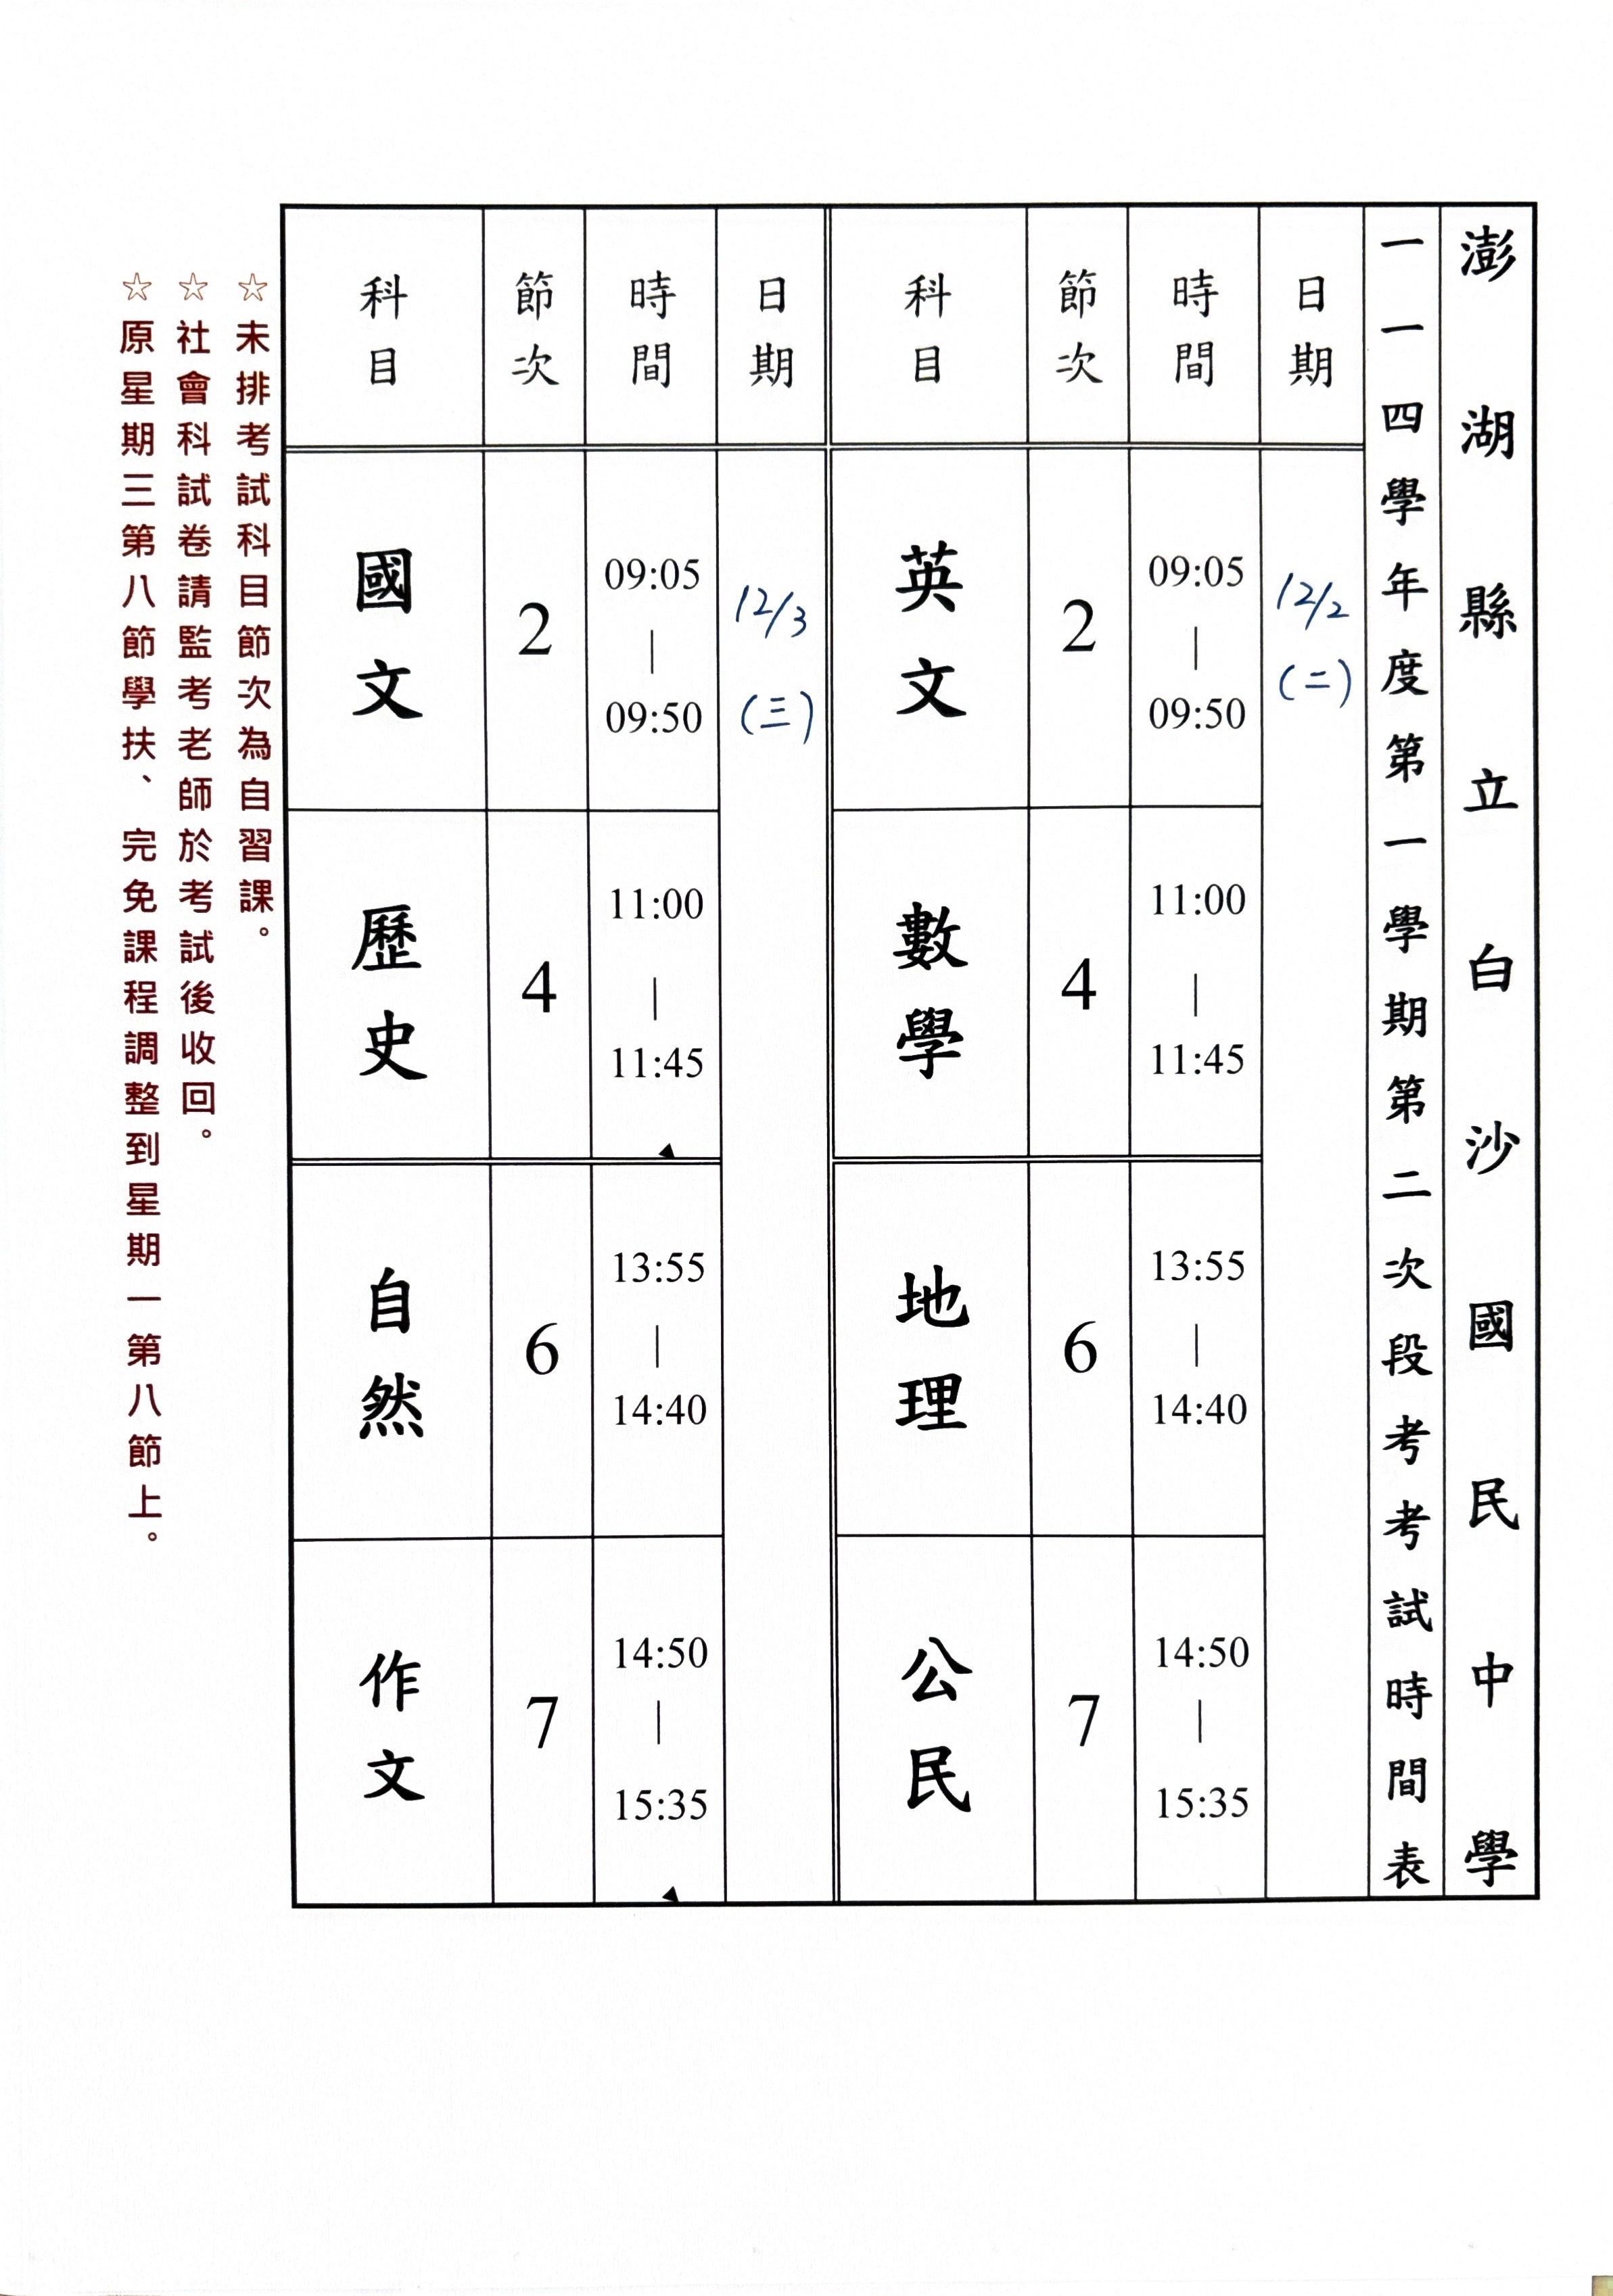 澎湖縣立白沙國民中學
一一四學年度第一學期第二次段考考試時間表
日期
12/2
(二)
時間
09:05
|
09:50
11:00
|
11:45
13:55
|
14:40
14:50
|
15:35
節次
2
4
6
7
科目
英文
數學
地理
公民
日期
12/3
(三)
時間
09:05
|
09:50
11:00
|
11:45
13:55
|
14:40
14:50
|
15:35
節次
2
4
6
7
科目
國文
歷史
自然
作文
☆未排考試科目節次為自習課。
☆社會科試卷請監考老師於考試後收回。
☆原星期三第八節學扶、完免課程調整到星期一第八節上。